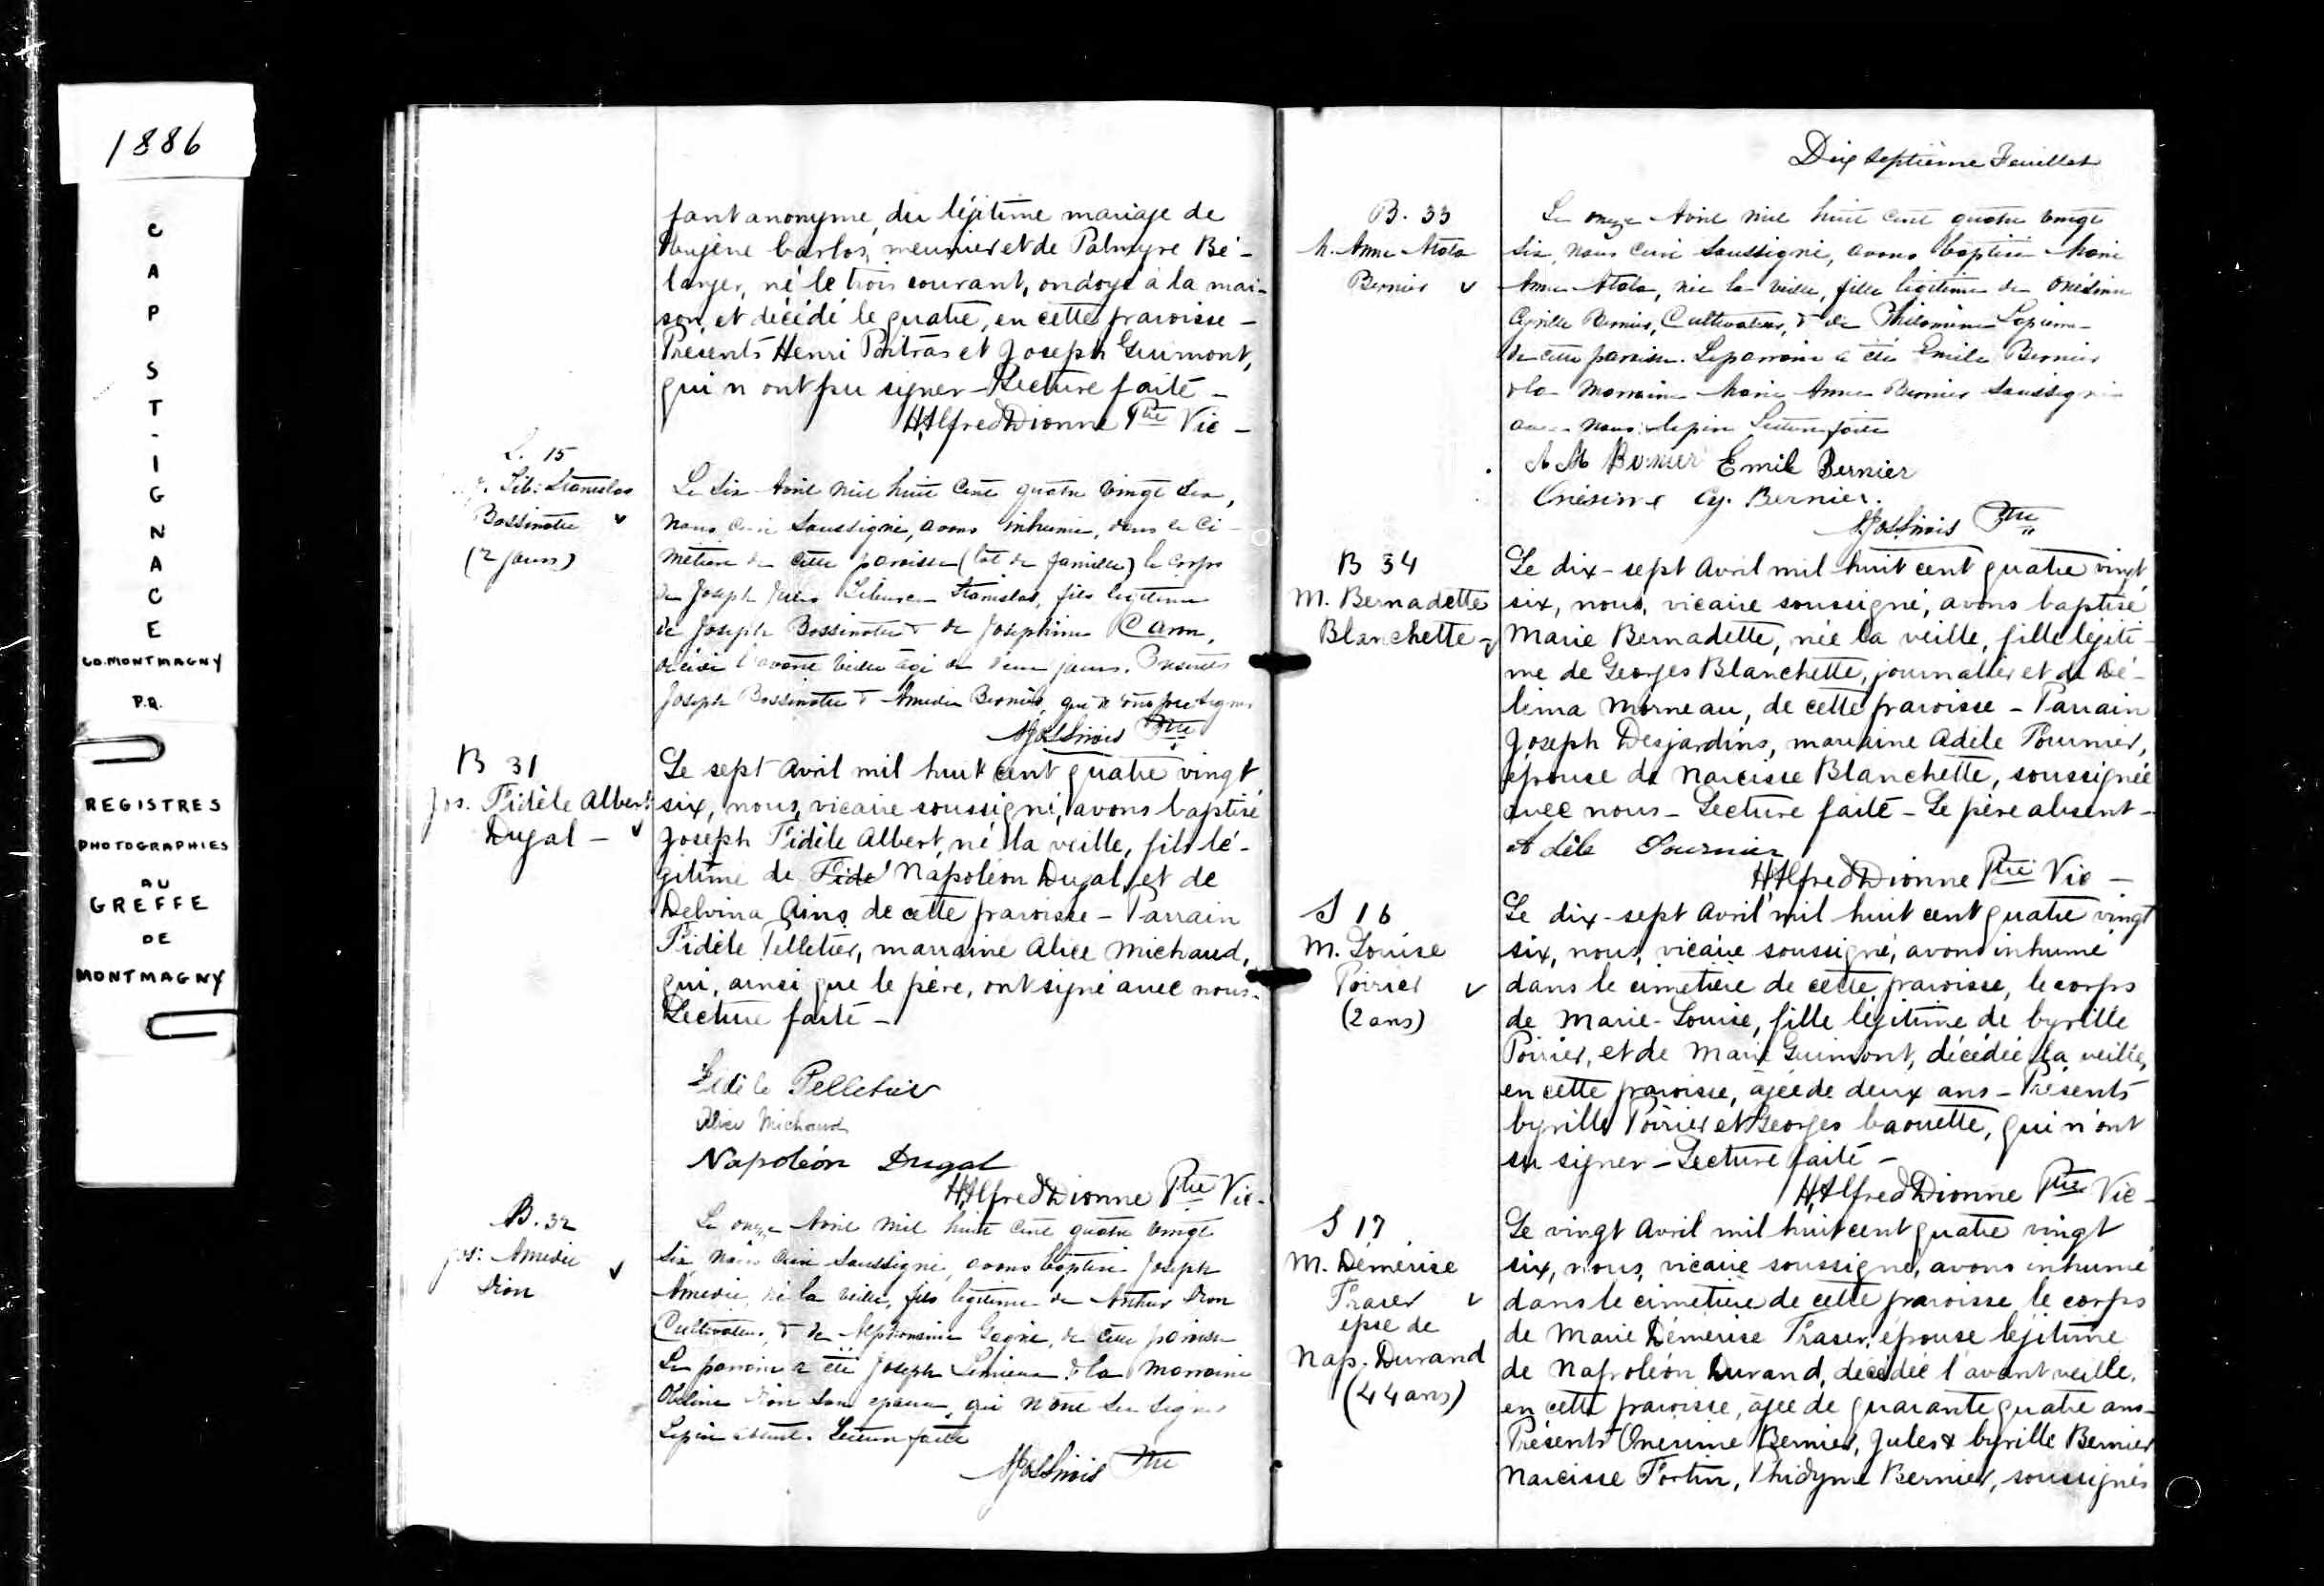 1886
CAP ST-IGNACE
CO. MONTMAGNY
P.Q.
REGISTRES
PHOTOGRAPHIES
AU
GREFFE
DE
MONTMAGNY
fant anonyme, du légitime mariage de
Eugène Carlos, meunier et de Palmyre Bé-
langer, né le trois courant, ondoyé à la mai-
son, et décédé le quatre, en cette paroisse -
Présents Henri Poitras et Joseph Guimont,
qui n'ont pu signer - Lecture faite -
H. Alfred Dionne Ptre Vic -
S. 15
Lib: Stanislas
Bossinotte
(2 jours)
Le six Avril mil huit cent quatre vingt six,
nous curé soussigné, avons inhumé, dans le ci-
metière de cette paroisse (lot de famille) le corps
de Joseph Jules Stanislas, fils légitime
de Joseph Bossinotte & de Josephine Caron,
décédé l'avant veille âgé de deux jours. Présents
Joseph Bossinotte & Amedée Bernier, qui n'ont pu signer
Ptre
B 31
Jos. Fidèle Albert
Dugal -
Le sept Avril mil huit cent quatre vingt
six, nous, vicaire soussigné, avons baptisé
Joseph Fidèle Albert, né la veille, fils lé-
gitime de Fide Napoléon Dugal, et de
Delvina Gins de cette paroisse - Parrain
Fidèle Pelletier, marraine Alice Michaud,
qui, ainsi que le père, ont signé avec nous.
Lecture faite -
Fidèle Pelletier
Alice Michaud
Napoléon Dugal
H. Alfred Dionne Ptre Vic -
B. 32
Jos: Amedée
Dion
Le onze Avril mil huit cent quatre vingt
six, nous curé soussigné, avons baptisé Joseph
Amedée, né la veille, fils légitime de Arthur Dion
Cultivateur, & de Alphonsine Gagné, de cette paroisse
Le parrain a été Joseph Lemieux & la marraine
Dion son épouse, qui n'ont su signer
Le père absent. Lecture faite
Ptre
Dix Septième Feuillet
B. 33
M. Anne Atala
Bernier
Le onze Avril mil huit cent quatre vingt
six, nous curé soussigné, avons baptisé Marie
Anne Atala, née la veille, fille légitime de Onésime
Cyrille Bernier, Cultivateur, & de Philomène
de cette paroisse. Le parrain a été Emile Bernier
& la marraine Marie Anne Bernier soussignés
avec nous. le père Lecture faite
A M Bernier Emile Bernier
Onésime Cy. Bernier.
Ptre
B 34
M. Bernadette
Blanchette -
Le dix-sept Avril mil huit cent quatre vingt
six, nous, vicaire soussigné, avons baptisé
Marie Bernadette, née la veille, fille légiti-
me de Georges Blanchette, journalier et de Dé-
lima Morneau, de cette paroisse - Parrain
Joseph Desjardins, marraine Adèle Fournier,
épouse de Narcisse Blanchette, soussignée
avec nous - Lecture faite - Le père absent -
Adèle Fournier
H. Alfred Dionne Ptre Vic -
S 16
M. Louise
Poirier
(2 ans)
Le dix-sept Avril mil huit cent quatre vingt
six, nous, vicaire soussigné, avons inhumé
dans le cimetière de cette paroisse, le corps
de Marie-Louise, fille légitime de Cyrille
Poirier, et de Marie Guimont, décédée la veille,
en cette paroisse, âgée de deux ans - Présents
Cyrille Poirier et Georges Caouette, qui n'ont
su signer - Lecture faite -
H. Alfred Dionne Ptre Vic -
S 17
M. Démérise
Fraser
epse de
Nap. Durand
(44 ans)
Le vingt Avril mil huit cent quatre vingt
six, nous, vicaire soussigné, avons inhumé
dans le cimetière de cette paroisse, le corps
de Marie Démérise Fraser, épouse légitime
de Napoléon Durand, décédée l'avant veille,
en cette paroisse, âgée de quarante quatre ans -
Présents Onesime Bernier, Jules & Cyrille Bernier
Narcisse Fortin, Thidyme Bernier, soussignés